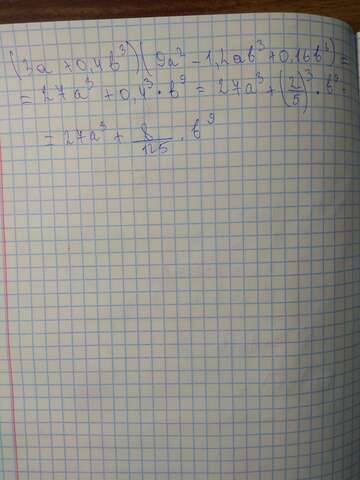 (3a + 0,4b³)(9a² - 1,2ab³ + 0,16b⁹) =
= 27a³ + 0,4³ · b⁹ = 27a³ + (2/5)³ · b⁹ =
= 27a³ + 8/125 · b⁹